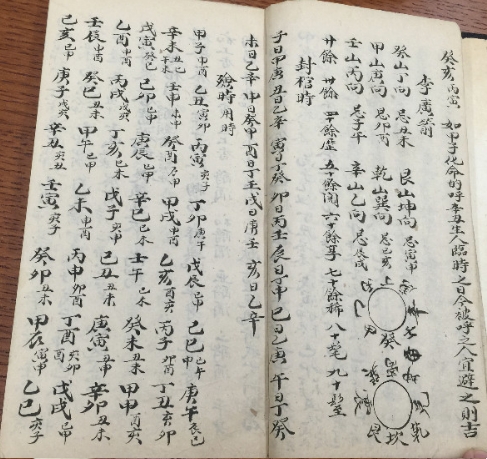 癸亥 丙寅 如甲子化命的呼本丑生人臨時之日今被呼之人宜避之則吉
李廣箭
癸山丁向 忌丑未 艮山坤向 忌寅申
甲山庚向 忌卯酉 乾山巽向 忌巳亥
壬山丙向 忌子午 辛山乙向 忌辰戌
癸
乾
坎
艮
封棺時
廿餘 卅餘 五十餘 六十餘 七十餘 八十 九十
子日甲庚 丑日乙辛 寅日丁癸 卯日丙壬 辰日丁甲 巳日乙庚 午日丁癸
未日乙辛 申日癸甲 酉日丁壬 戌日庚壬 亥日乙辛
殮時用時
甲子 乙丑 寅卯 丙寅 亥子 丁卯 戊辰 巳申 己巳 庚午 辰巳
辛未 壬申 癸酉 甲戌 申酉 乙亥 酉亥 丙子 卯酉 丁丑 亥卯
戊寅 己卯 巳申 庚辰 巳申 辛巳 巳未 壬午 巳未 癸未 丑未 甲申 酉亥
乙酉 丙戌 丁亥 巳未 戊子 亥申 己丑 丑未 庚寅 丑申 辛卯 丑未
壬辰 申酉 癸巳 丑未 甲午 巳申 乙未 申酉 丙申 卯酉 丁酉 戊戌 巳申
己亥 巳申 庚子 戌亥 辛丑 亥丑 壬寅 亥子 癸卯 丑未 甲辰 寅申 乙巳 亥子